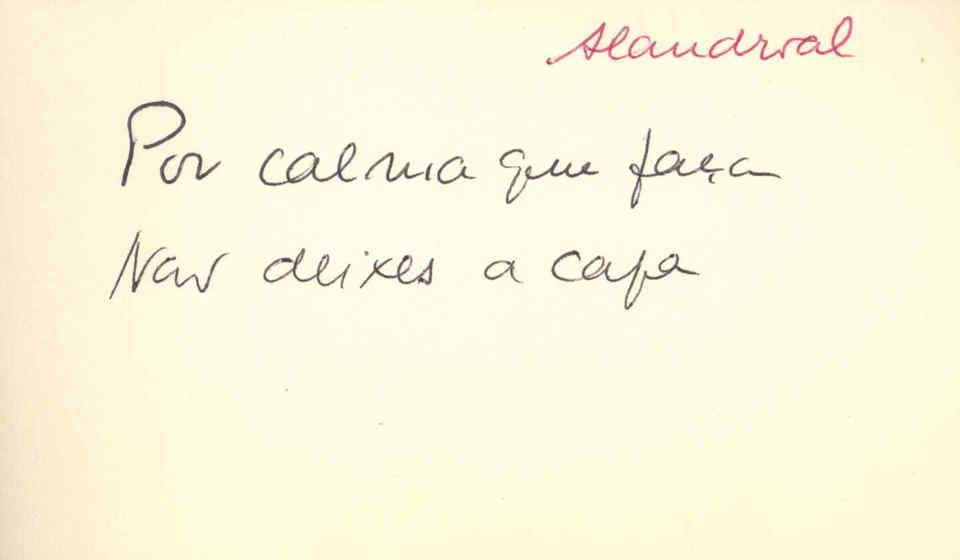 Alandroal
Por calma que faça
Não deixes a capa